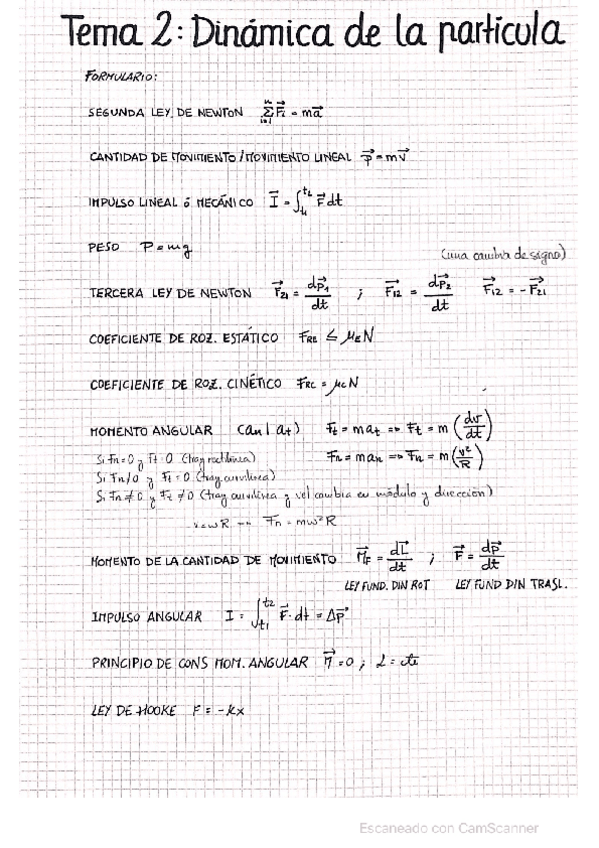 Tema 2: Dinámica de la partícula
FORMULARIO:
SEGUNDA LEY DE NEWTON $\sum_{i=1}^{n} \vec{F_i} = m\vec{a}$
CANTIDAD DE MOVIMIENTO / MOVIMIENTO LINEAL $\vec{p} = m\vec{v}$
IMPULSO LINEAL ó MECÁNICO $\vec{I} = \int_{t_1}^{t_2} \vec{F} dt$
PESO P = mg
(una cambia de signo)
TERCERA LEY DE NEWTON $\vec{F}_{21} = \frac{d\vec{p}_1}{dt}$ ; $\vec{F}_{12} = \frac{d\vec{p}_2}{dt}$ $\vec{F}_{12} = -\vec{F}_{21}$
COEFICIENTE DE ROZ. ESTÁTICO $F_{RE} \leq \mu_E N$
COEFICIENTE DE ROZ. CINÉTICO $F_{RC} = \mu_C N$
MOMENTO ANGULAR (an | at) $F_t = ma_t \Rightarrow F_t = m\left(\frac{dv}{dt}\right)$
Si Fn=0 y Ft=0 (tray rectilínea) $F_n = ma_n \Rightarrow F_n = m\left(\frac{v^2}{R}\right)$
Si Fn≠0 y Ft=0 (tray. curvilínea)
Si Fn≠0 y Ft≠0 (tray curvilínea y vel cambia en módulo y dirección)
v=wR → Fn = mw²R
MOMENTO DE LA CANTIDAD DE MOVIMIENTO $\vec{M}_F = \frac{d\vec{L}}{dt}$ ; $\vec{F} = \frac{d\vec{p}}{dt}$
LEY FUND. DIN ROT LEY FUND DIN TRASL.
IMPULSO ANGULAR $I = \int_{t_1}^{t_2} \vec{F} \cdot dt = \Delta\vec{p}$
PRINCIPIO DE CONS MOM. ANGULAR $\vec{M} = 0$ ; L = cte
LEY DE HOOKE F = -kx
Escaneado con CamScanner